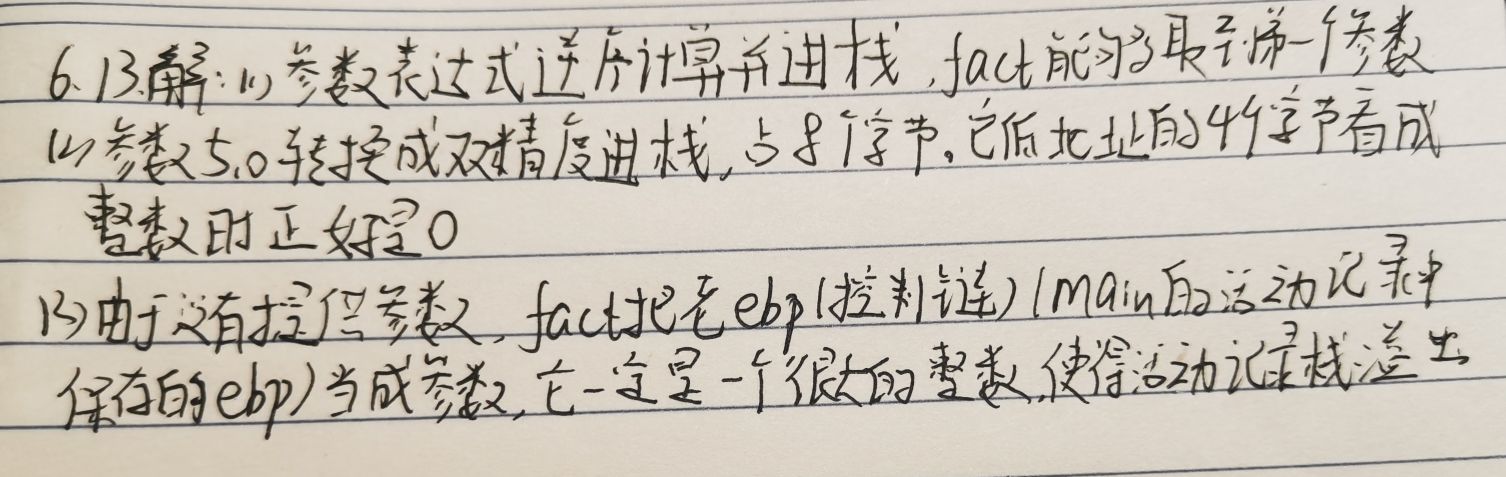 6.13.解:(1)参数表达式逆序计算并进栈,fact能够取到第一个参数
(2)参数5.0转换成双精度进栈,占8个字节。它低地址的4个字节看成
整数时正好是0
(3)由于没有提供参数,fact把老ebp(控制链)(main的活动记录中
保存的ebp)当成参数,它一定是一个很大的整数,使得活动记录栈溢出